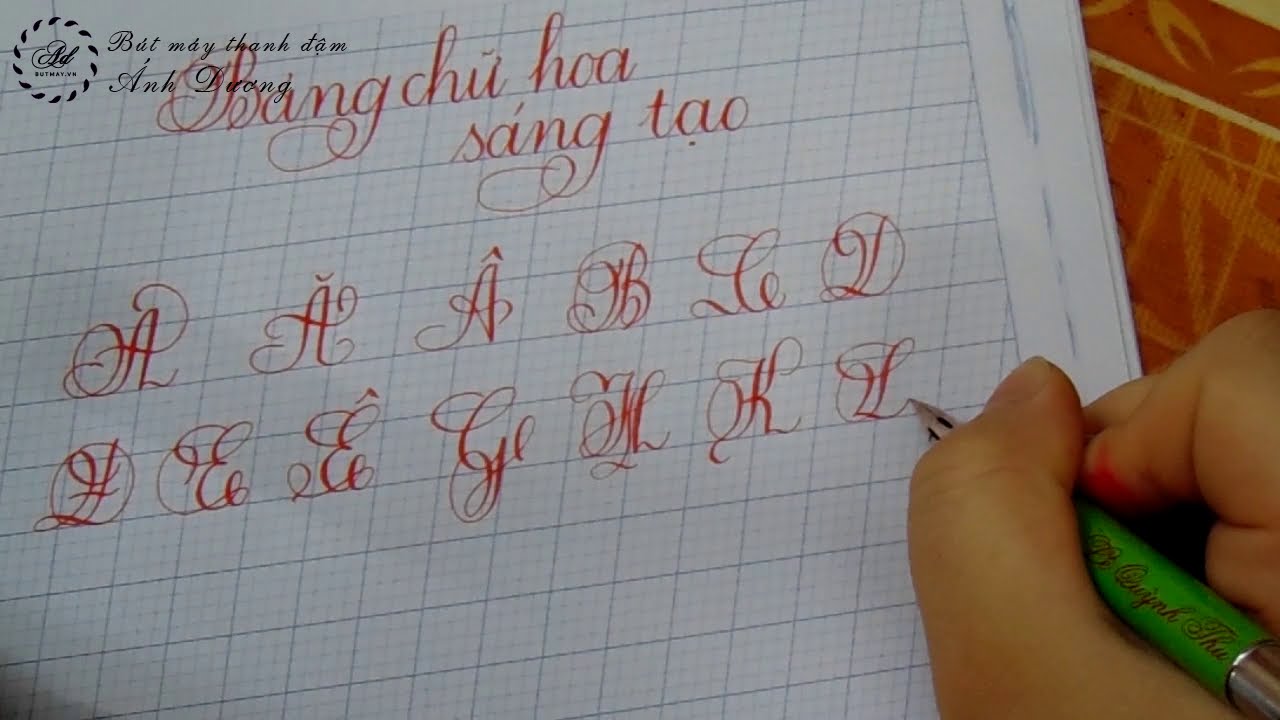 Ad
BUTMAY.VN
Bút máy thanh đậm
Ánh Dương
Bảng chữ hoa
sáng tạo
A Ă Â B C D
Đ E Ê G H K L
B Quỳnh Thư